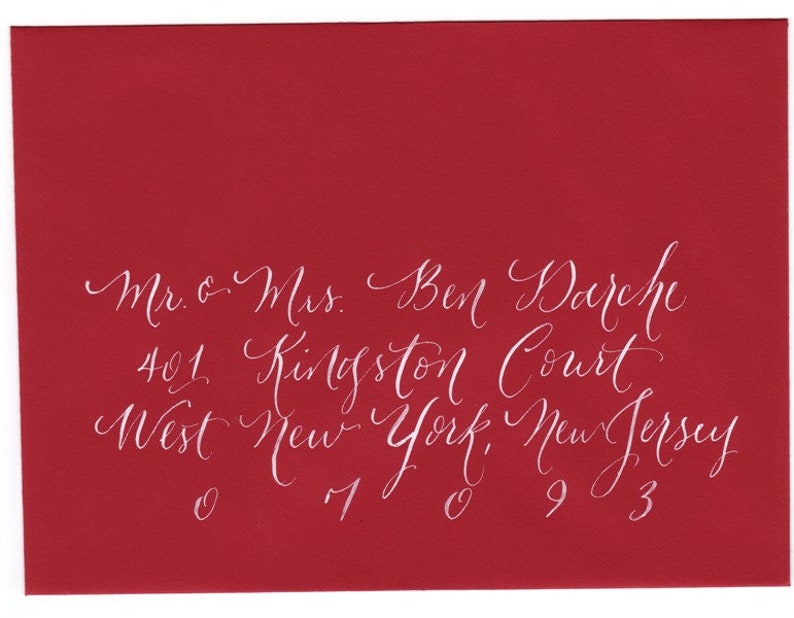 Mr. & Mrs. Ben Darche
401 Kingston Court
West New York, New Jersey
0 7 0 9 3